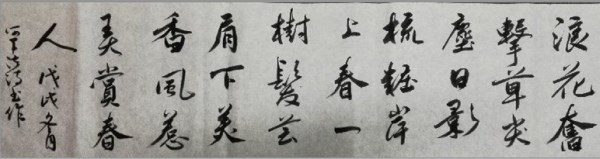 浪花奮
擊草尖
塵日影
梳粧岸
上春一
樹髮芸
肩下美
香風惹
美賞春
人 戊戌冬月